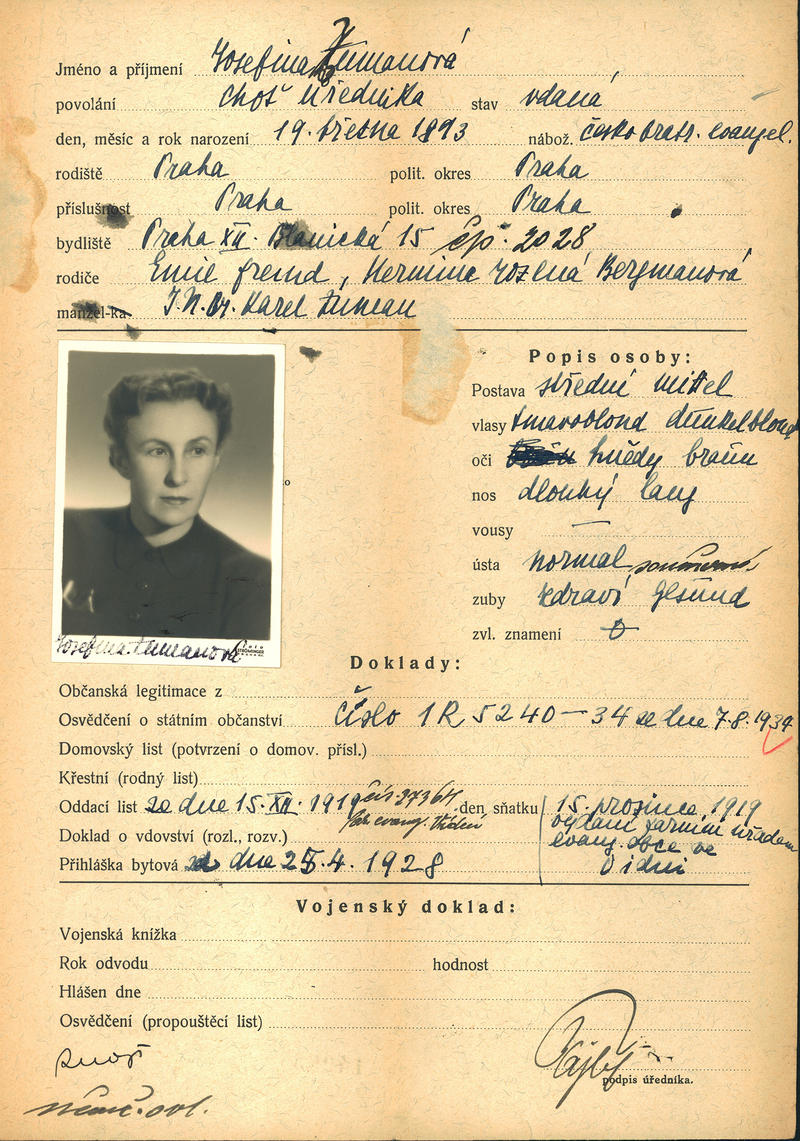 Jméno a příjmení Josefina Žumanová
povolání choť úředníka stav vdaná
den, měsíc a rok narození 19. března 1893 nábož. českobratr. evangel.
rodiště Praha polit. okres Praha
příslušnost Praha polit. okres Praha
bydliště Praha XII. Blanická 15 čp. 2028
rodiče Emil Fremd, Hermina rozená Bergmanová
manžel-ka Dr. Karel Žuman
Popis osoby:
Postava střední mittel
vlasy tmavoblond dunkelblond
oči hnědý braun
nos dlouhý lang
vousy —
ústa normal, souměrná
zuby zdraví, gesund
zvl. znamení
Josefina Žumanová
Doklady:
Občanská legitimace z
Osvědčení o státním občanství číslo 1R 5240 — 34 ze dne 7.8. 1934
Domovský list (potvrzení o domov. přísl.)
Křestní (rodný list)
Oddací list ze dne 15. XII. 1919 čís. 27364 den sňatku 15. prosince 1919
evang. Vídni vydaní farním úřadem
evang. obce ve
Doklad o vdovství (rozl., rozv.) Vídni
Přihláška bytová dne 25.4. 1928
Vojenský doklad:
Vojenská knížka
Rok odvodu hodnost
Hlášen dne
Osvědčení (propouštěcí list)
podpis úředníka.